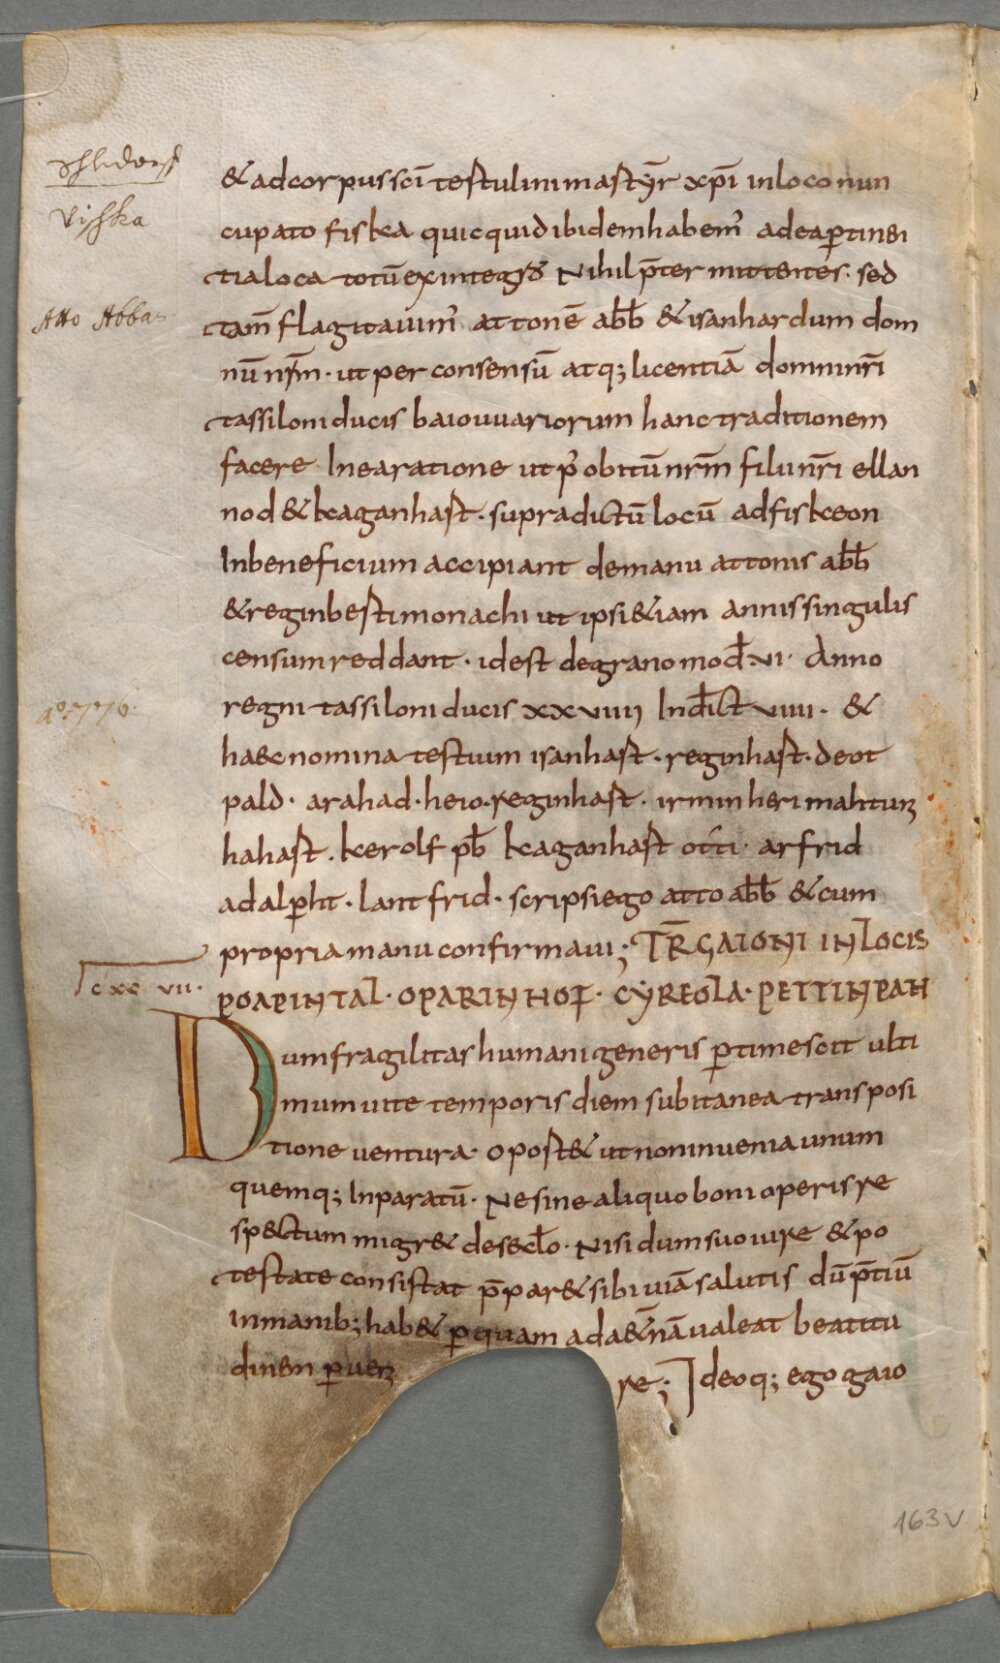 Schledorf
Vishka
Atto Abbas
aº. 776.
& ad corpus sc̄i testulini martȳr xp̄i in loco nun
cupato fiskea quicquid ibidem habem᾿ ad ea p̱tinen
tia loca totū ex integro Nihil p̄ter mittentes. sed
tam̄ flagitauim᾿ attonē ab̄b & isanhardum dom
nū nr̄m. ut per consensū atq; licentiā domni nr̄i
tassiloni ducis baiouuariorum hanc traditionem
facere In ea ratione ut p᾿ obitū nr̄m filii nr̄i ellan
nod & keaganhart. supradictū locū ad fiskeon
In beneficium accipiant de manu attonis ab̄b
& reginberti monachi ut ipsi &iam annis singulis
censum reddant. id est de grano mod̄ .vi. Anno
regni tassiloni ducis xxviiii Ind̄ict viiii. &
haec nomina testium isanhart. reginhart. deot
pald. arahad. heio. reginhart. irminheri mahtun
hahart. kerolf pb̄ keaganhart otti. arfrid
adalp̱ht. lantfrid. scripsi ego atto ab̄b & cum
propria manu confirmaui; TR̄ GAIONI IN LOCIS
cxc vii.
POAPINTAL. OPARINHOF. CYREOLA. PETTINPAH
Dum fragilitas humani generis p̱timescit ulti
mum uite temporis diem subitanea transposi
tione ventura. oport& ut non inueniat unum
quemq; Inparatū. Ne sine aliquo boni operis re
spectum migr& de sēclo. Nisi dum suo iure & po
testate consistat p̄par& sibi uiā salutis dū p̄tiū
in manib; hab& p̱ quam ad aet̄nā ualeat beatitu
dinem p̱uen re; Ideoq; ego gaio
163v